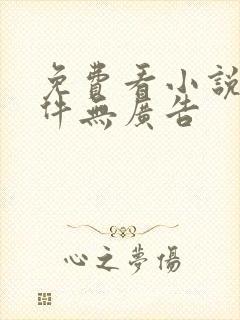 免費看小說
件無廣告
心之夢傷